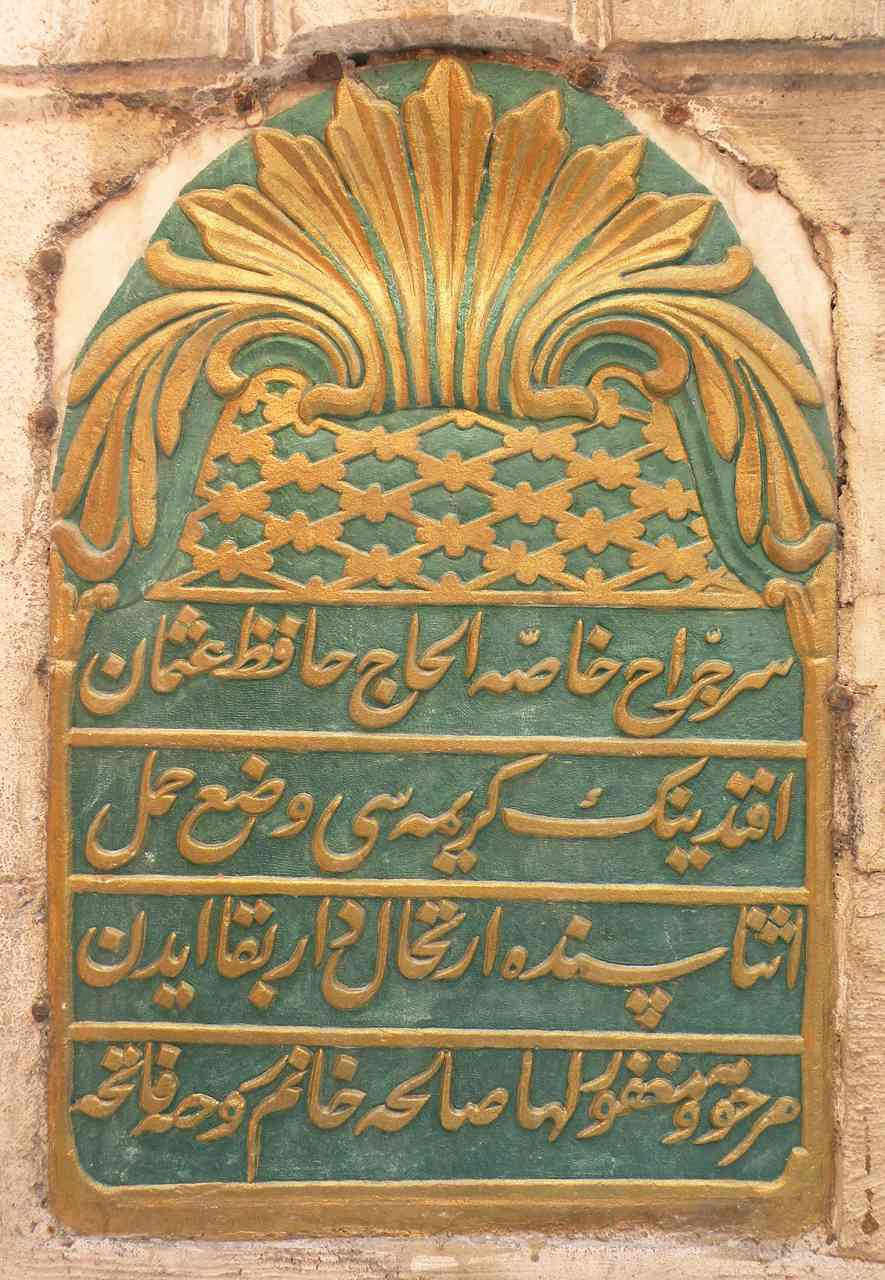 سرجرّاح خاصّه الحاج حافظ عثمان
افندينك كريمه سی وضع حمل
اثناسنده ارتحال دار بقا ايدن
مرحومه ومغفور لها صالحه خانم روحنه فاتحه